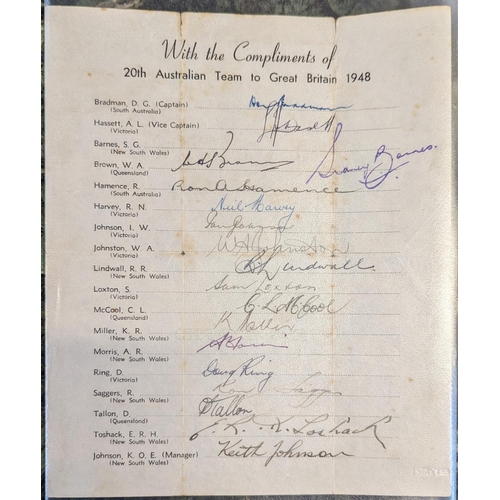 With the Compliments of
20th Australian Team to Great Britain 1948
Bradman, D. G. (Captain) Don Bradman
(South Australia)
Hassett, A. L. (Vice Captain) A L Hassett
(Victoria)
Barnes, S. G. Sidney G Barnes.
(New South Wales)
Brown, W. A. W A Brown
(Queensland)
Hamence, R. Ron A Hamence
(South Australia)
Harvey, R. N. Neil Harvey
(Victoria)
Johnson, I. W. Ian Johnson
(Victoria)
Johnston, W. A. W A Johnston
(Victoria)
Lindwall, R. R. R R Lindwall.
(New South Wales)
Loxton, S. Sam Loxton
(Victoria)
McCool, C. L. C. L. McCool
(Queensland)
Miller, K. R. K Miller
(New South Wales)
Morris, A. R. A Morris
(New South Wales)
Ring, D. Doug Ring
(Victoria)
Saggers, R. Ron Saggers
(New South Wales)
Tallon, D. D Tallon
(Queensland)
Toshack, E. R. H. E. R. H. Toshack
(New South Wales)
Johnson, K. O. E. (Manager) Keith Johnson
(New South Wales)